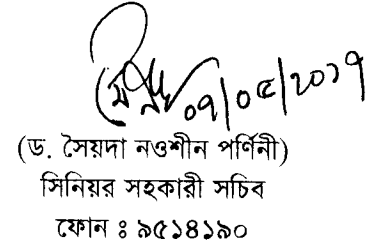 ০৭/০৫/২০১৭
(ড. সৈয়দা নওশীন পর্ণিনী)
সিনিয়র সহকারী সচিব
ফোন ঃ ৯৫১৪১৯০